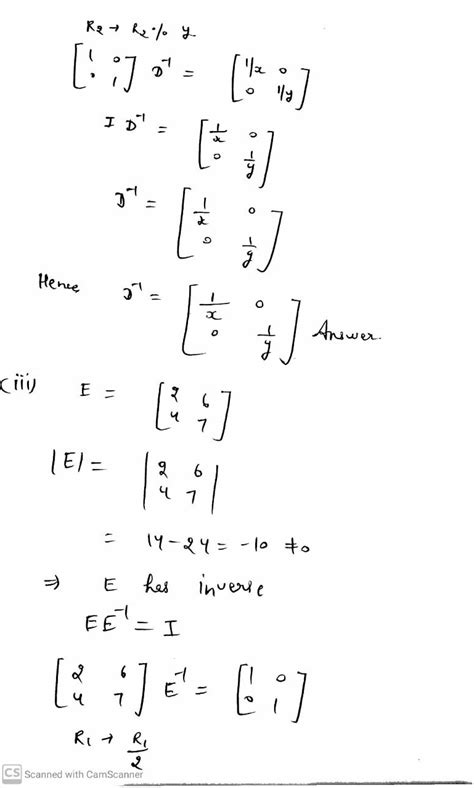 R₂ → R₂ % y
[1 0; 0 1] D⁻¹ = [1/x 0; 0 1/y]
I D⁻¹ = [1/x 0; 0 1/y]
D⁻¹ = [1/x 0; 0 1/y]
Hence D⁻¹ = [1/x 0; 0 1/y] Answer.
(iii) E = [2 6; 4 7]
|E| = |2 6; 4 7|
= 14-24 = -10 ≠0
⇒ E has inverse
EE⁻¹ = I
[2 6; 4 7] E⁻¹ = [1 0; 0 1]
R₁ → R₁/2
CS Scanned with CamScanner